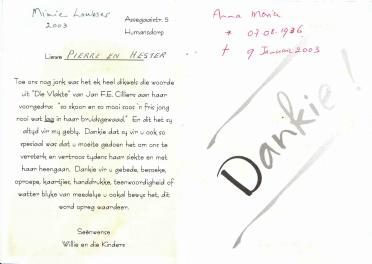 Minnie Lombaer
2003
Assegaaistr. 5
Humansdorp
Liewe PIERRE EN HESTER
Toe ons nog jonk was het ek heel dikwels die woorde
uit "Die Vlakte" van Jan F.E. Cilliers aan haar
voorgedra: "so skoon en so mooi soos 'n fris jong
nooi wat lag in haar bruidsgewaad." En dit het sy
altyd vir my gebly. Dankie dat sy vir u ook so
spesiaal was dat u moeite gedoen het om ons te
versterk en vertroos tydens haar siekte en met
haar heengaan. Dankie vir u gebede, besoeke,
oproepe, kaartjies, handdrukke, teenwoordigheid of
watter blyke van meedelye u ookal bewys het, dit
word opreg waardeer.
Seënwense
Willie en die Kinders
Anna Maria
* 07.08.1936
† 9 Januarie 2003
Dankie!